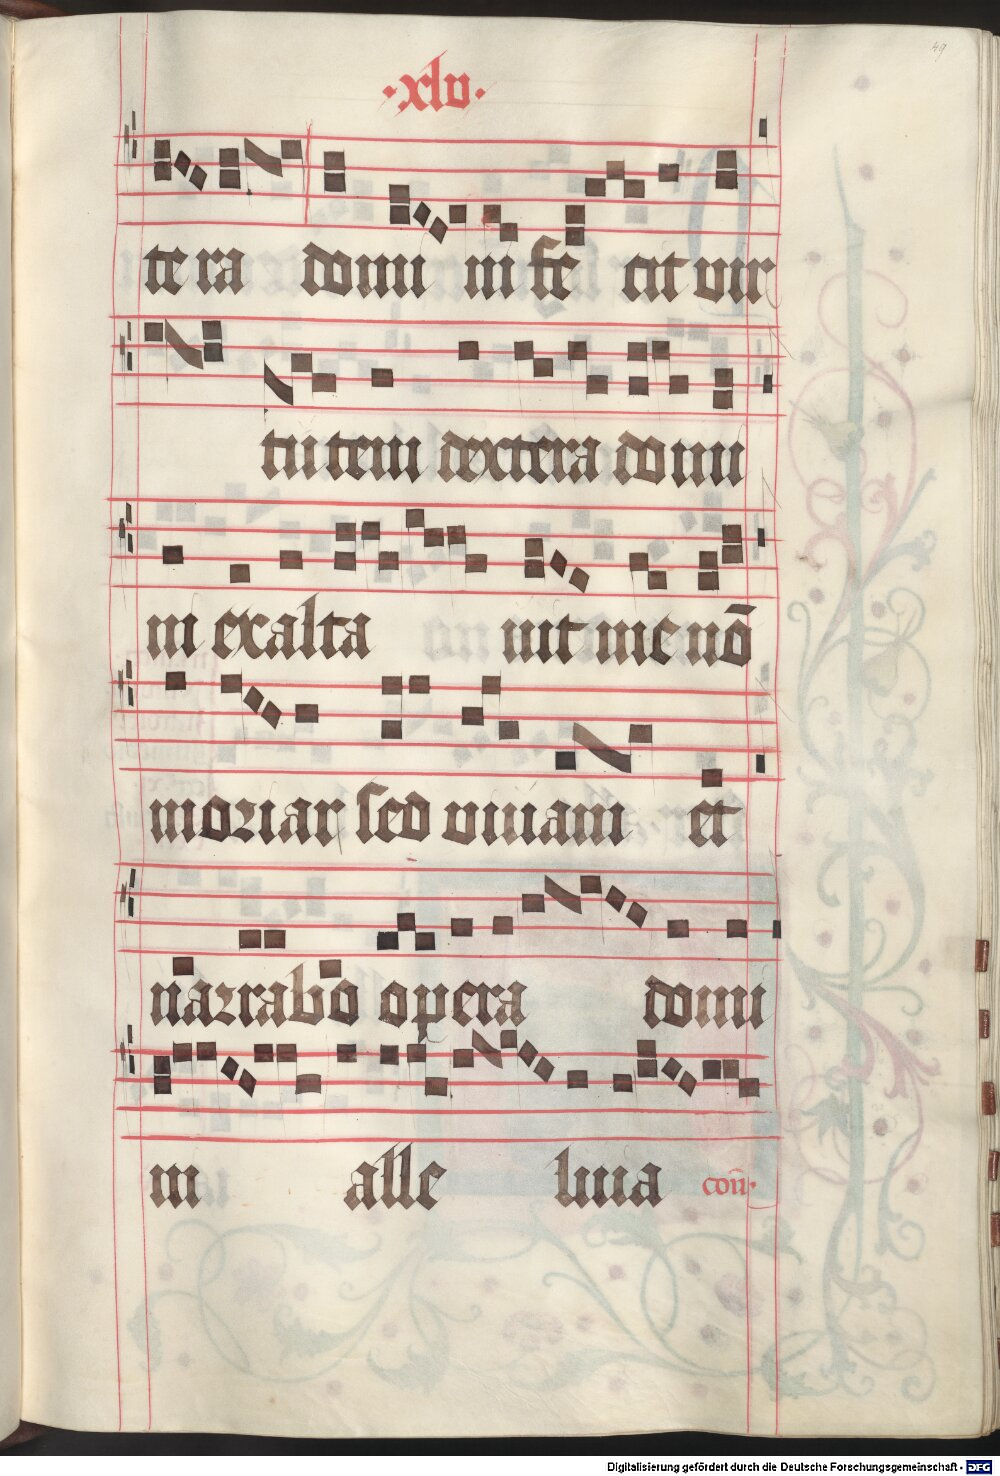 49
·xlv·
tera domi ni fe cit vir
tutem dextera domi
ni exalta uit me nō
moriar sed viuam et
narrabo opera domi
ni alle luia coīī·
Digitalisierung gefördert durch die Deutsche Forschungsgemeinschaft - DFG